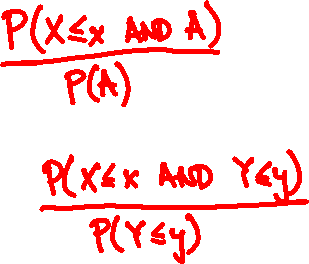 P(X≤x AND A)
P(A)
P(X≤x AND Y≤y)
P(Y≤y)